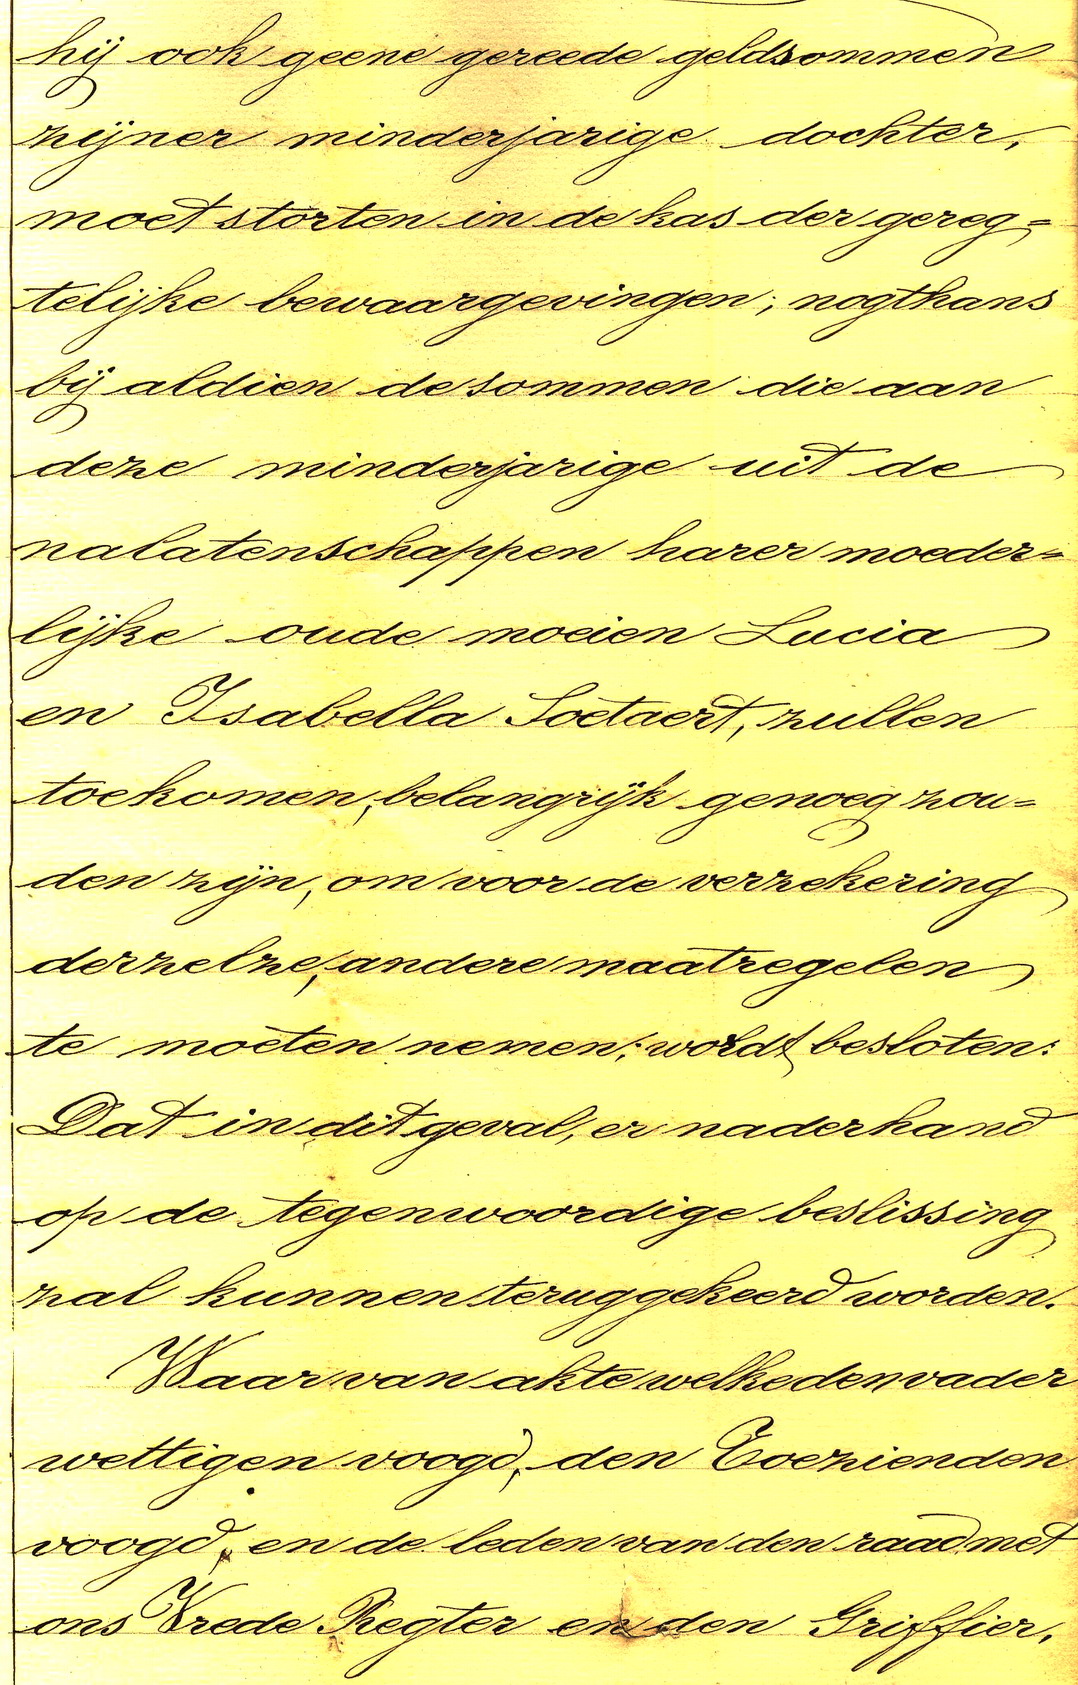 hij ook geene gereede geldsommen
zijner minderjarige dochter,
moet storten in de kas der gereg=
telijke bewaargevingen; nogthans
bij aldien de sommen die aan
deze minderjarige uit de
nalatenschappen harer moeder=
lijke oude moeien Lucia
en Isabella Soetaert, zullen
toekomen, belangrijk genoeg zou=
den zijn, om voor de verzekering
derzelve, andere maatregelen
te moeten nemen; wordt besloten:
Dat in dit geval, er naderhand
op de tegenwoordige beslissing
zal kunnen teruggekeerd worden.
Waarvan akte welke den vader
wettigen voogd, den Toezienden
voogd, en de leden van den raad met
ons Vrede Regter en den Griffier,